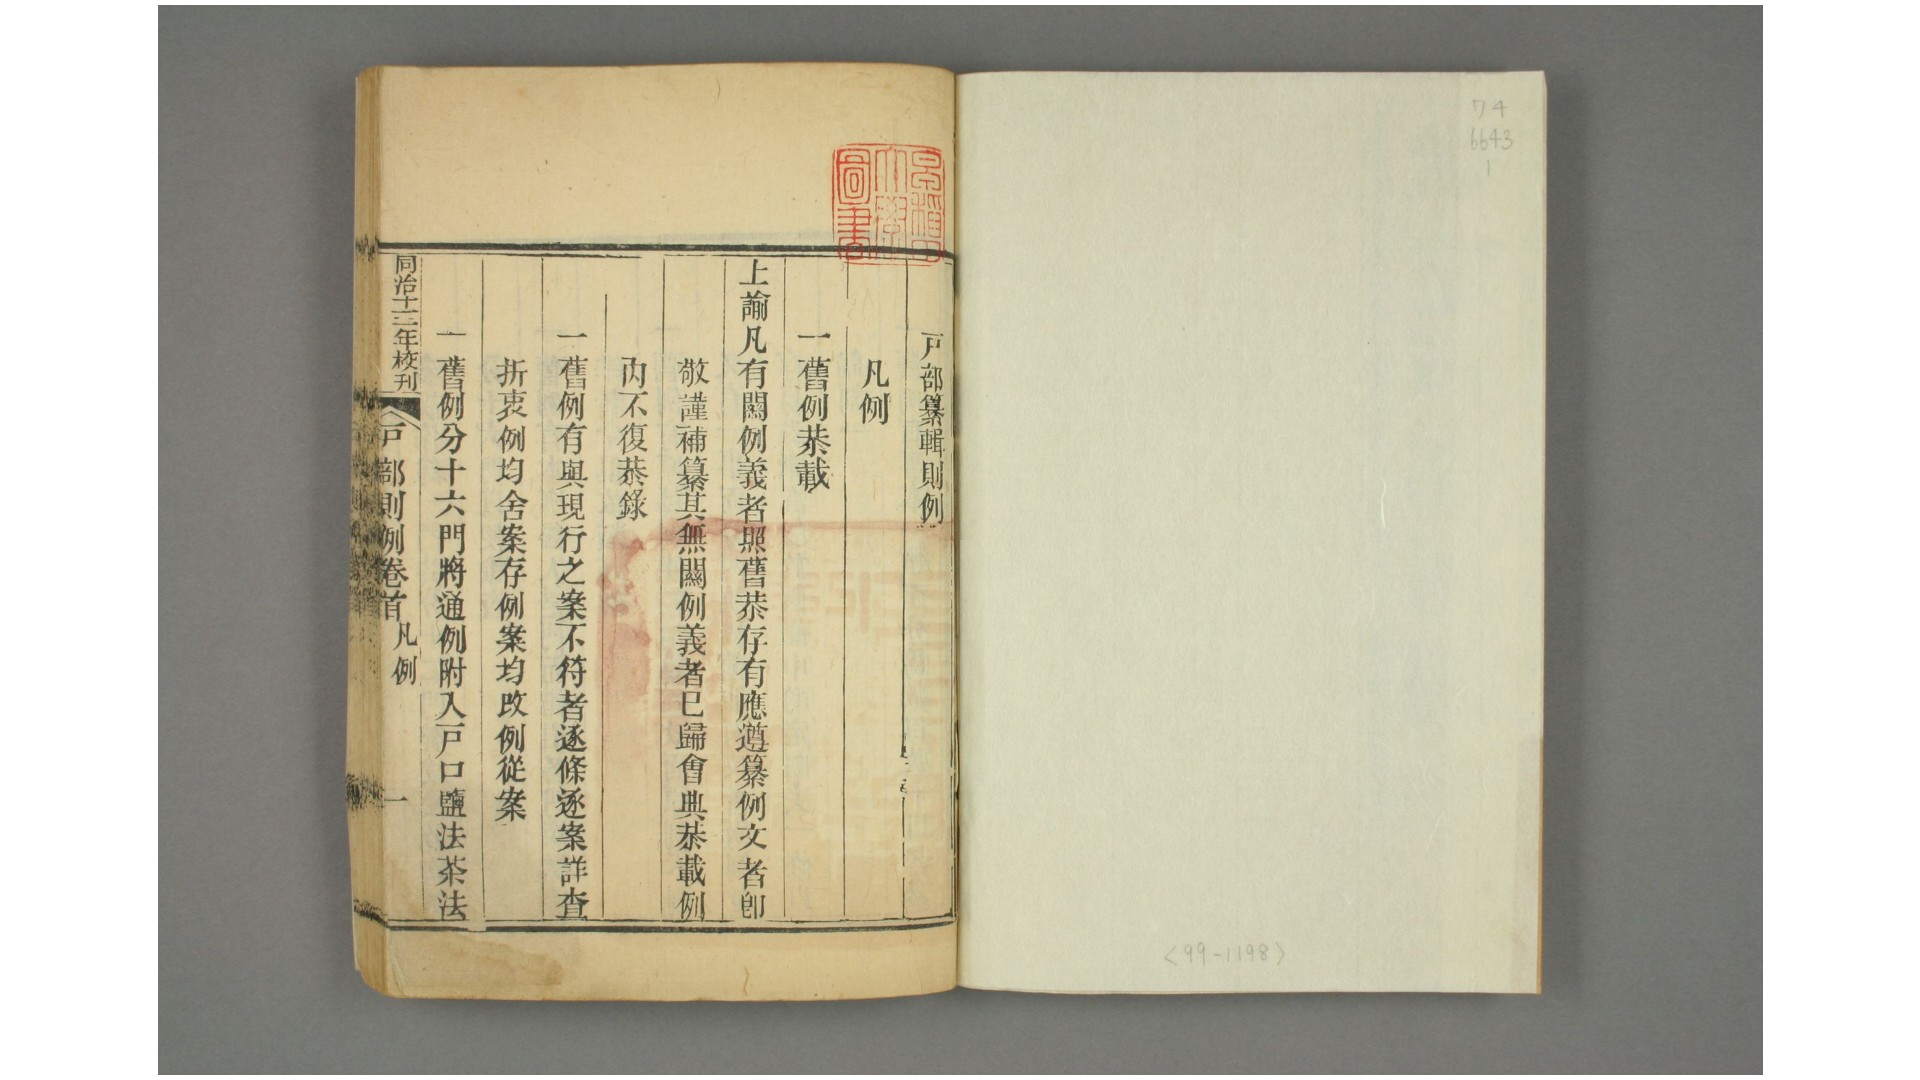 ワ4
6643
1
<99-1198>
早稲田大學圖書
戸部纂輯則例
凡例
一舊例恭載
上諭凡有關例義者照舊恭存有應遵纂例文者卽
敬謹補纂其無關例義者已歸會典恭載例
內不復恭錄
一舊例有與現行之案不符者逐條逐案詳查
折衷例均舍案存例案均改例從案
一舊例分十六門將通例附入戸口鹽法茶法
同治十二年校刊
戸部則例卷首
凡例
一